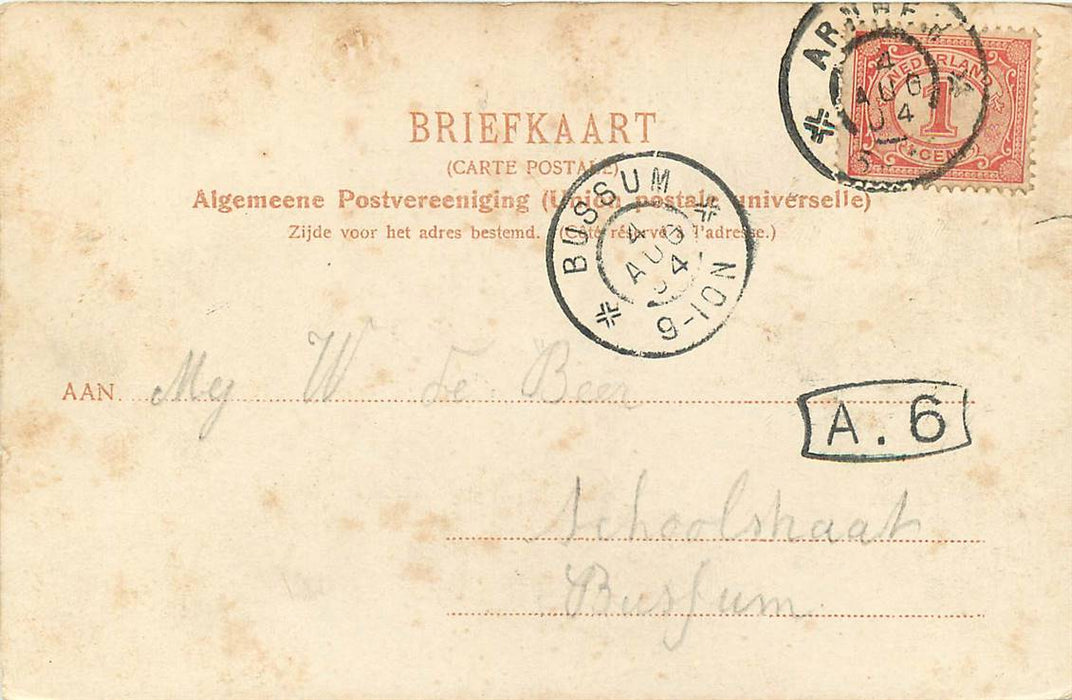 ARNHEM
4
AUG
04
NEDERLAND
1
CENT
BRIEFKAART
(CARTE POSTALE)
Algemeene Postvereeniging (Union postale universelle)
Zijde voor het adres bestemd. (Côté réservé à l'adresse.)
BUSSUM
4
AUG
04
9-10N
AAN Mej W de Beer
A. 6
Schoolstraat
Bussum